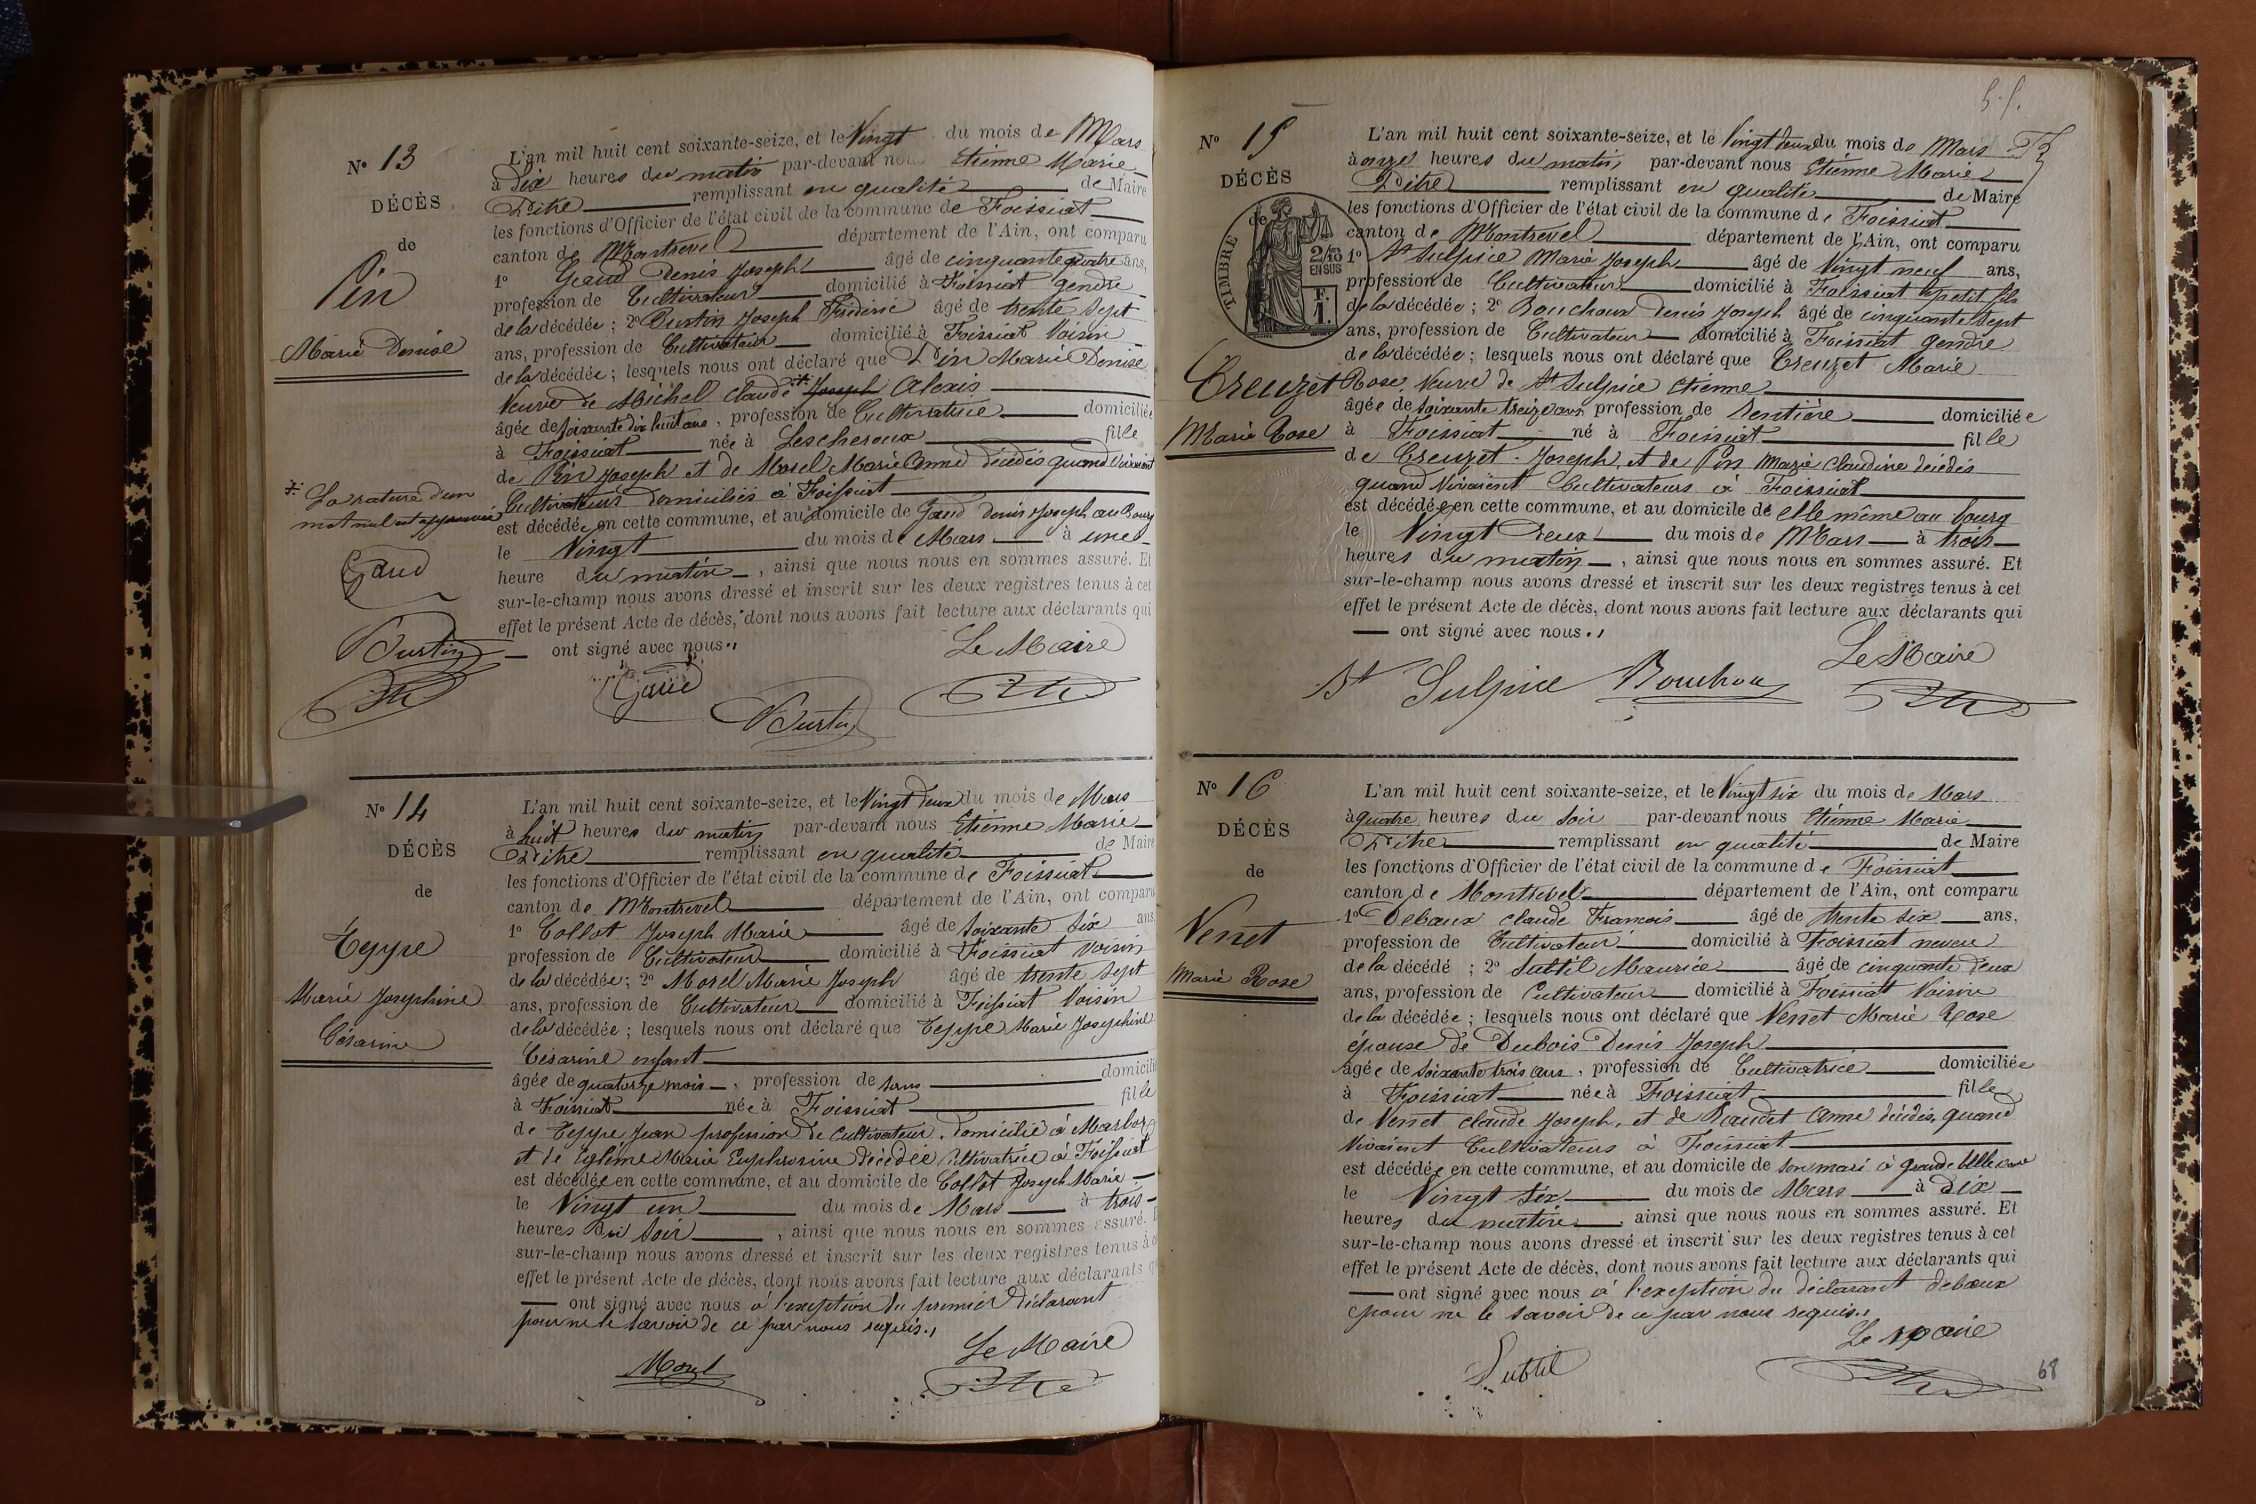 N° 13
DÉCÈS
de
Pin
Marie Denise
L'an mil huit cent soixante-seize, et le Vingt du mois de Mars
à Dix heures du matin par-devant nous Etienne Marie
Pitre remplissant en qualité de Maire
les fonctions d'Officier de l'état civil de la commune de Foissiat
canton de Montrevel département de l'Ain, ont comparu
1° Gaud Denis Joseph âgé de cinquante quatre ans,
profession de Cultivateur domicilié à Foissiat gendre
de la décédée ; 2° Burtin Joseph Frédéric âgé de trente sept
ans, profession de Cultivateur domicilié à Foissiat Voisin
de la décédée ; lesquels nous ont déclaré que Pin Marie Denise
Veuve de Michel Claude Joseph Alexis
âgée de soixante dix huit ans, profession de Cultivatrice domiciliée
à Foissiat née à Lescheroux fille
de Pin Joseph et de Morel Marie Anne décédés quand Vivaient
Cultivateurs domiciliés à Foissiat
est décédée en cette commune, et au domicile de Gaud Denis Joseph au Bourg
le Vingt du mois de Mars à une
heure du matin, ainsi que nous nous en sommes assuré. Et
sur-le-champ nous avons dressé et inscrit sur les deux registres tenus à cet
effet le présent Acte de décès, dont nous avons fait lecture aux déclarants qui
ont signé avec nous.
La rature d'un
mot nul est approuvée
Gaud
Burtin
Le Maire
Gaud
Burtin
N° 14
DÉCÈS
de
Teppe
Marie Josephine
Césarine
L'an mil huit cent soixante-seize, et le Vingt deux du mois de Mars
à huit heures du matin par-devant nous Etienne Marie
Pitre remplissant en qualité de Maire
les fonctions d'Officier de l'état civil de la commune de Foissiat
canton de Montrevel département de l'Ain, ont comparu
1° Collot Joseph Marie âgé de soixante six ans
profession de Cultivateur domicilié à Foissiat voisin
de la décédée ; 2° Morel Marie Joseph âgé de trente sept
ans, profession de Cultivateur domicilié à Foissiat Voisin
de la décédée ; lesquels nous ont déclaré que Teppe Marie Josephine
Césarine enfant
âgée de quatorze mois, profession de sans domicilié
à Foissiat née à Foissiat fille
de Teppe Jean profession de Cultivateur, domicilié à Marboz
et de Marie Euphrosine décédée Cultivatrice à Foissiat
est décédée en cette commune, et au domicile de Collot Joseph Marie
le Vingt un du mois de Mars à trois
heures du soir, ainsi que nous nous en sommes assuré.
sur-le-champ nous avons dressé et inscrit sur les deux registres tenus à
effet le présent Acte de décès, dont nous avons fait lecture aux déclarants
ont signé avec nous à l'exeption du premier déclarant
pour ne le savoir de ce par nous requis.
Morel
Le Maire
N° 15
DÉCÈS
de
TIMBRE
2/10
EN SUS
F.
1.
Creuzet
Marie Rose
L'an mil huit cent soixante-seize, et le Vingt deux du mois de Mars
à onze heures du matin par-devant nous Etienne Marie
Pitre remplissant en qualité de Maire
les fonctions d'Officier de l'état civil de la commune de Foissiat
canton de Montrevel département de l'Ain, ont comparu
1° St Sulpice Marie Joseph âgé de Vingt neuf ans,
profession de Cultivateur domicilié à Foissiat petit fils
de la décédée ; 2° Bouchoux Denis Joseph âgé de cinquante sept
ans, profession de Cultivateur domicilié à Foissiat gendre
de la décédée ; lesquels nous ont déclaré que Creuzet Marie
Rose, Veuve de St Sulpice Etienne
âgée de soixante treize ans profession de rentière domiciliée
à Foissiat né à Foissiat fille
de Creuzet Joseph, et de Pin Marie Claudine décédés
quand Vivaient Cultivateurs à Foissiat
est décédée en cette commune, et au domicile de elle même au bourg
le Vingt deux du mois de Mars à trois
heures du matin, ainsi que nous nous en sommes assuré. Et
sur-le-champ nous avons dressé et inscrit sur les deux registres tenus à cet
effet le présent Acte de décès, dont nous avons fait lecture aux déclarants qui
ont signé avec nous.
Le Maire
St Sulpice Bouchoux
N° 16
DÉCÈS
de
Venet
Marie Rose
L'an mil huit cent soixante-seize, et le Vingt six du mois de Mars
à quatre heures du soir par-devant nous Etienne Marie
Pitre remplissant en qualité de Maire
les fonctions d'Officier de l'état civil de la commune de Foissiat
canton de Montrevel département de l'Ain, ont comparu
1° Debaux Claude François âgé de trente six ans,
profession de Cultivateur domicilié à Foissiat neveu
de la décédé ; 2° Subtil Maurice âgé de cinquante deux
ans, profession de Cultivateur domicilié à Foissiat Voisin
de la décédée ; lesquels nous ont déclaré que Venet Marie Rose
épouse de Dubois Denis Joseph
âgée de soixante trois ans, profession de Cultivatrice domiciliée
à Foissiat née à Foissiat fille
de Venet Claude Joseph, et de Baudet Anne décédés, quand
Vivaient Cultivateurs à Foissiat
est décédée en cette commune, et au domicile de son mari à grande
le Vingt six du mois de Mars à dix
heures du matin, ainsi que nous nous en sommes assuré. Et
sur-le-champ nous avons dressé et inscrit sur les deux registres tenus à cet
effet le présent Acte de décès, dont nous avons fait lecture aux déclarants qui
ont signé avec nous à l'exeption du déclarant debaux
pour ne le savoir de ce par nous requis.
Le Maire
Subtil
68